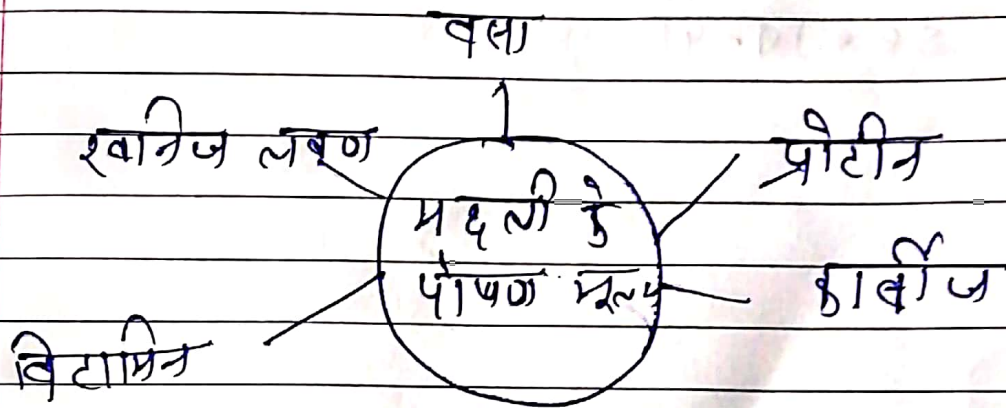 वसा
खनिज लवण
प्रोटीन
मछली के
पोषण मूल्य
कार्बोज
विटामिन